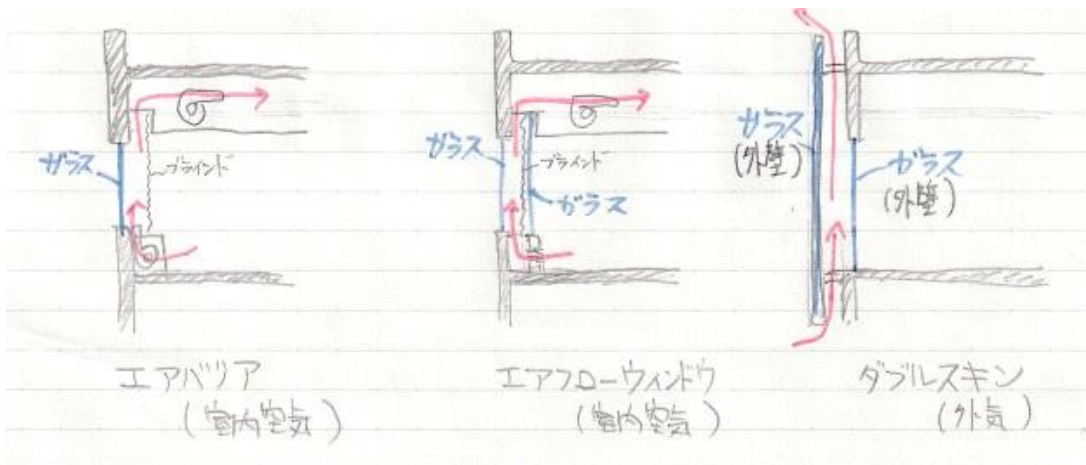 ガラス
ブラインド
エアバリア
(室内空気)
ガラス
ブラインド
ガラス
エアフローウィンドウ
(室内空気)
ガラス
(外壁)
ガラス
(外壁)
ダブルスキン
(外気)